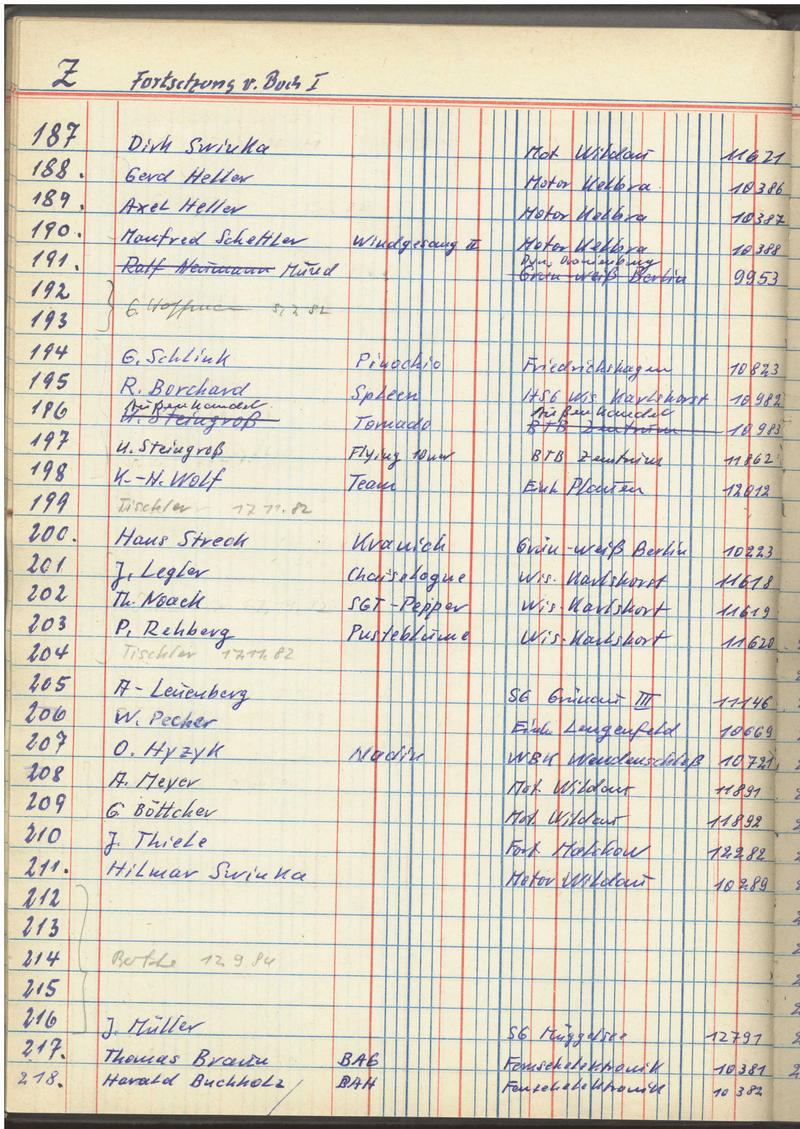 Z Fortsetzung v. Buch I
187 Dirk Swinka Mot Wildau 11621
188. Gerd Heller Motor Kelbra 10386
189. Axel Heller Motor Kelbra 10387
190. Manfred Schettler Windgesang II Motor Kelbra 10388
Dyn. Oranienburg
191. Ralf Neumann Müred Grün-weiß Berlin 9953
192
193 G. Hoffmann 82
194 G. Schlink Pinochio Friedrichshagen 10823
195 R. Borchard Spleen HSG Wis Karlshorst 10982
Außenhandel Außenhandel
196 H. Steingroß Tornado BTB Zentrum 10983
197 H. Steingroß Flying 10ner BTB Zentrum 11862
198 K.-H. Wolf Team Einh Plauen 12012
199 Tischler 17.11.82
200. Hans Streck Kranich Grün-weiß Berlin 10223
201 J. Legler Chaiselogue Wis. Karlshorst 11618
202 Th. Noack SGT-Pepper Wis-Karlshort 11619
203 P. Rehberg Pusteblume Wis-Karlshort 11620
204 Tischler 17.11.82
205 A-Leuenberg SG Grünau III 11146
206 W. Pecher Einh. Lengenfeld 10669
207 O. Hyzyk Nadin WBK Wendenschloß 10721
208 A. Meyer Mot. Wildau 11891
209 G. Böttcher Mot. Wildau 11892
210 J. Thiele Fort. Malchow 12282
211. Hilmar Swinka Motor Wildau 10289
212
213
214 12 9 84
215
216 J. Müller SG Müggelsee 12791
217. Thomas Braun BAG Fernsehelektronik 10381
218. Harald Buchholz BAH Fernsehelektronik 10382